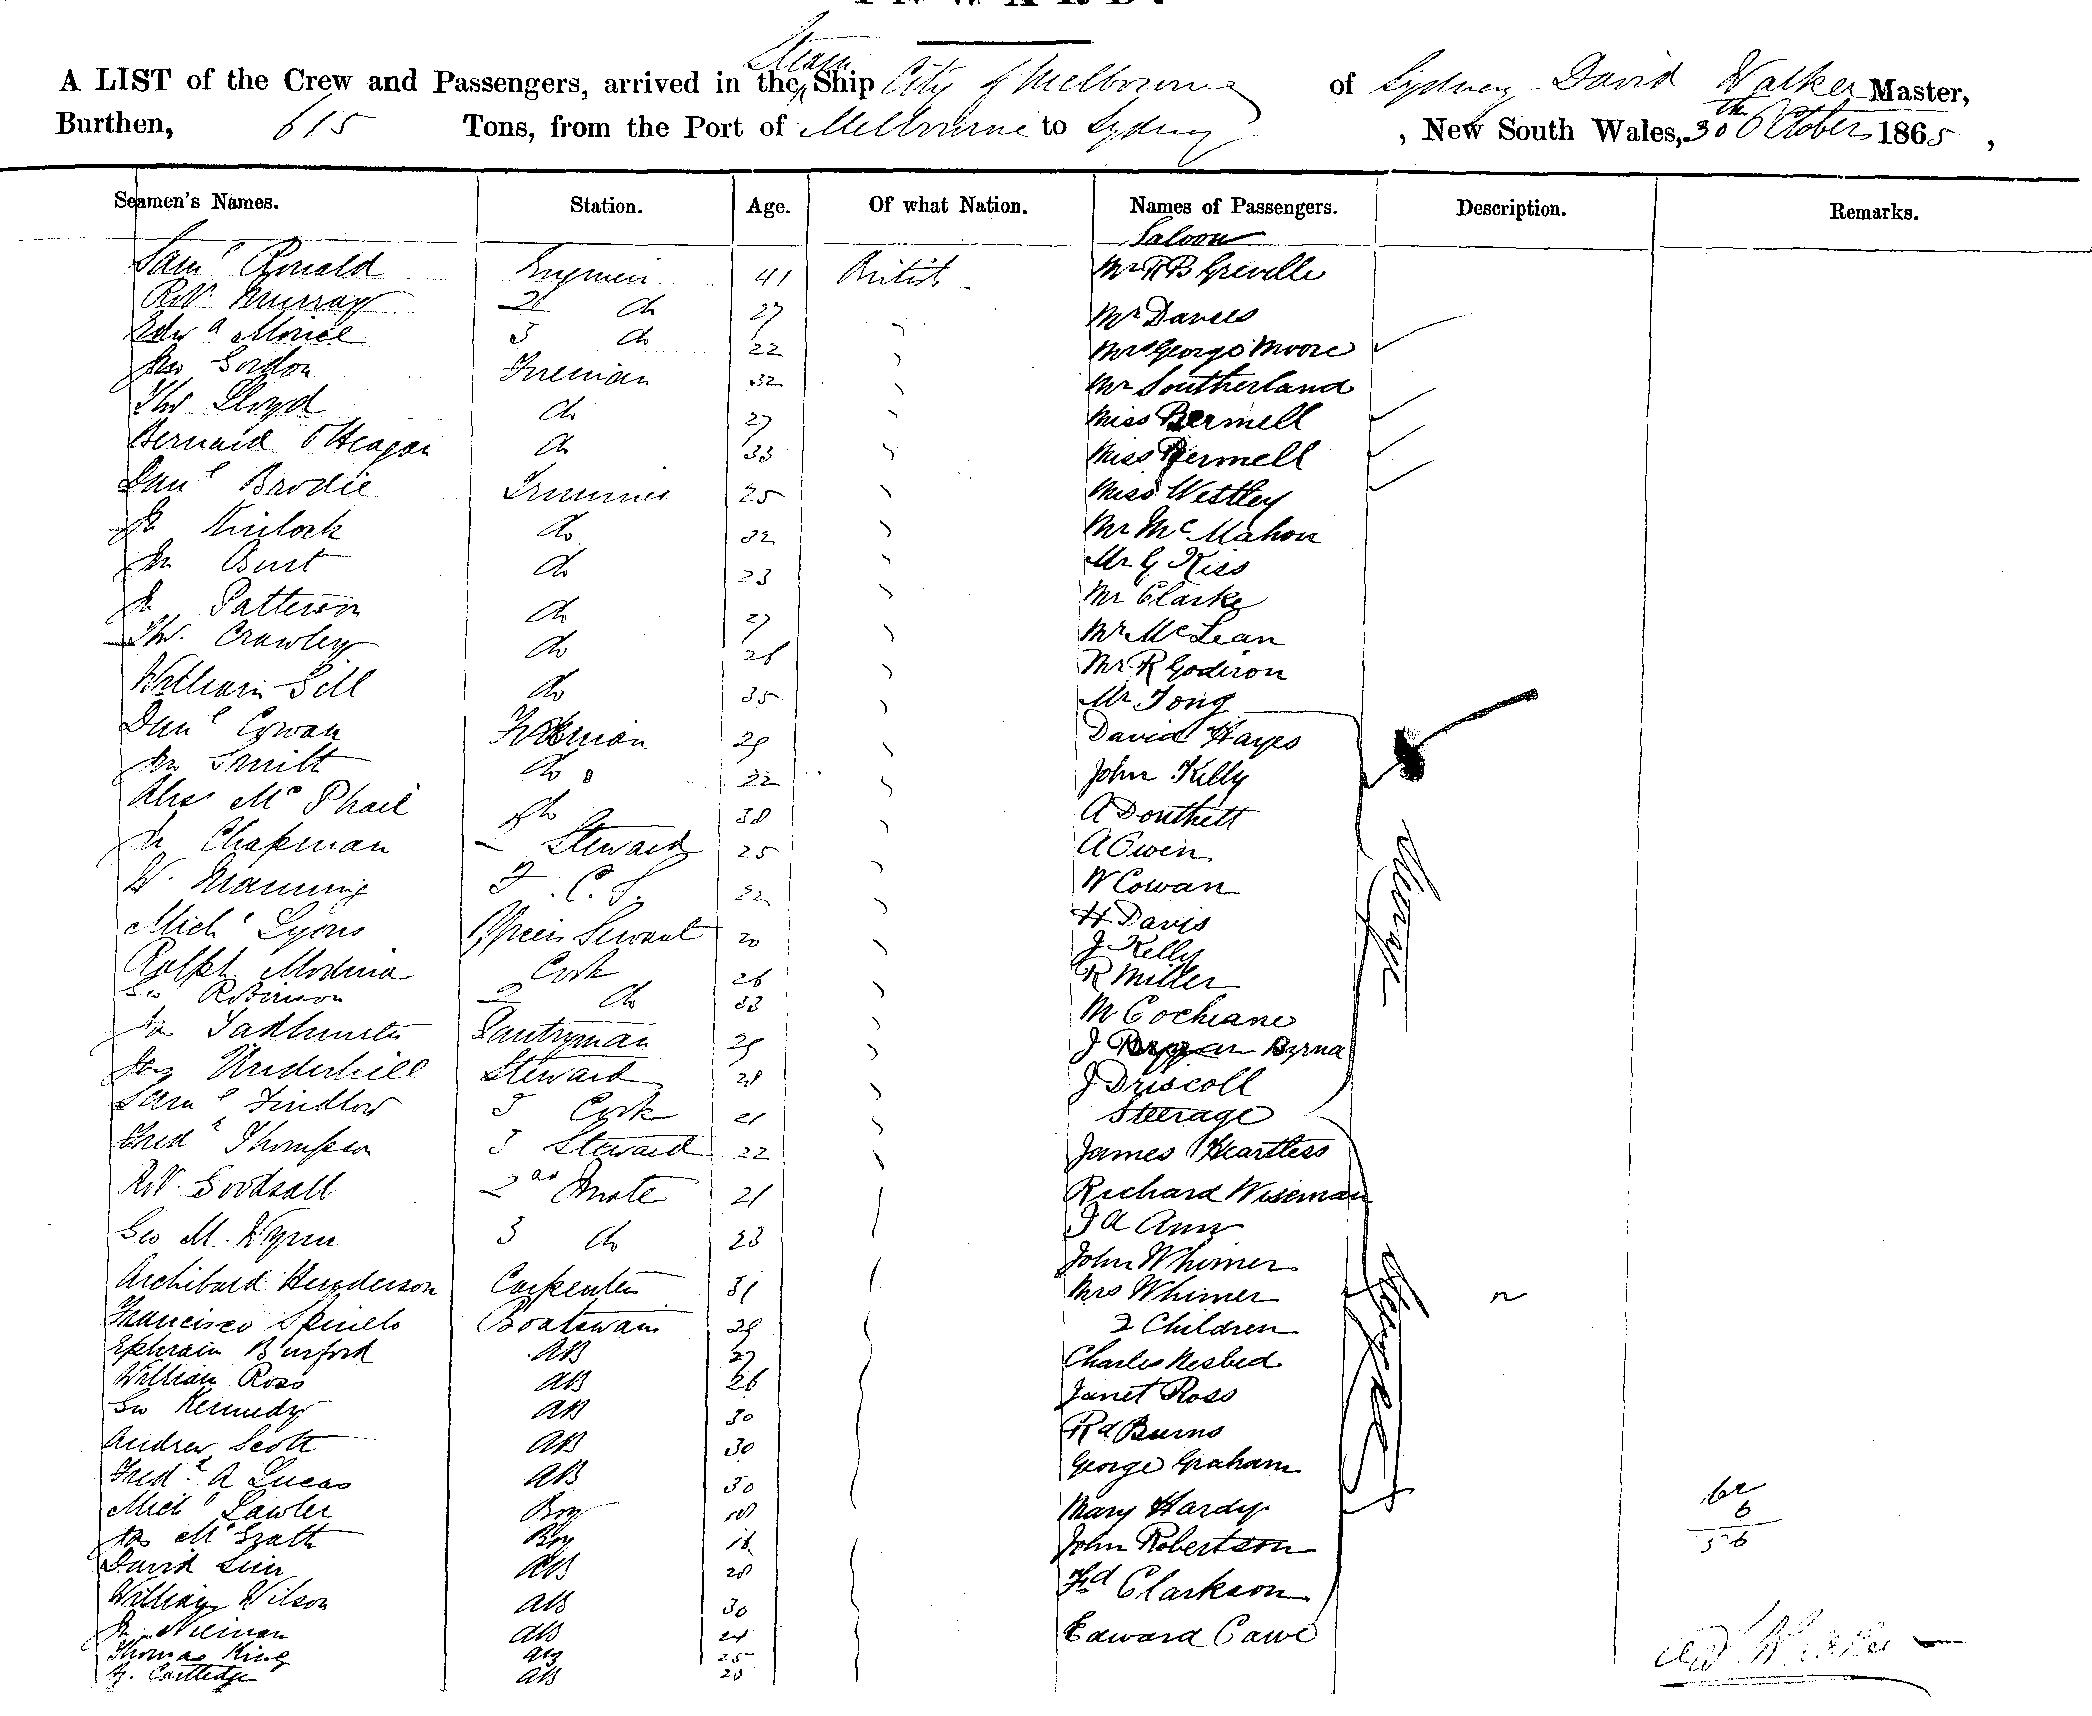 INWARD.
A LIST of the Crew and Passengers, arrived in the Steam Ship City of Melbourne of Sydney David Walker Master,
Burthen, 615 Tons, from the Port of Melbourne to Sydney, New South Wales, 30th October 1865,
Seamen's Names. Station. Age. Of what Nation. Names of Passengers. Description. Remarks.
Saloon
Saml Ronald 41 British Mr R B Greville
Robt Murray 2 do 27 Mr Davies
Edwd 3 do 22 Mrs George Moore
Jas Gordon Fireman 32 Mr Southerland
Thos Lloyd do 27 Miss Bermell
Bernard O'Heagan do 33 Miss Bermell
Danl Brodie Trimmer 25 Miss Westley
Jn Kinlock do 32 Mr McMahon
Jn Burt do 23 Mr G Kiss
Jn Patterson do 27 Mr Clarke
Thos. Crawley do 26 Mr McLean
William Gill do 35 Mr R Goderon
Danl Cowan 29 Mr Tong
Jn Smith do 32 David Hayes
Alex McPhail do 38 John Kelly
Jn Chapman Steward 25 A Douthett
W. Manning 22 A Owen
Michl Lyons Officers Servant 20 W Cowan
Ralph Modina Cook 26 H Davis
Geo Robinson 2 do 33 J Kelly
Jn Tadhunter Pantryman 29 R Miller
Jas Underhill Steward 28 M Cochrane
Saml Findlow 3 Cook 21 J Byrna
Fredk Thompson 3 Steward 22 J Driscoll
Steerage
Robt Goodsall 2nd Mate 21 James Heartless
Geo M. Wynn 3 do 23 Richard Wiseman
Archibard Henderson Carpenter 31 J A Ann
Francisco Spinelo Boatswain 29 John Whimer
Ephraim Burford AB 27 Mrs Whimer
William Ross AB 26 2 Children
Geo Kennedy AB 30 Charles Nesbed
Andrew Scott AB 30 Janet Ross
Fredk A Lucas AB 30 Rd Burns
Michl Lawler Boy 18 George Graham
Jas McGrath Boy 16 Mary Hardy
David Linn AB 28 John Robertson
William Wilson AB 30 Fd Clarkson
Jn Nieman AB 24 Edward Cawe
Thomas King AB 25
G. Cartledge AB 28
62
6
56
D Walker